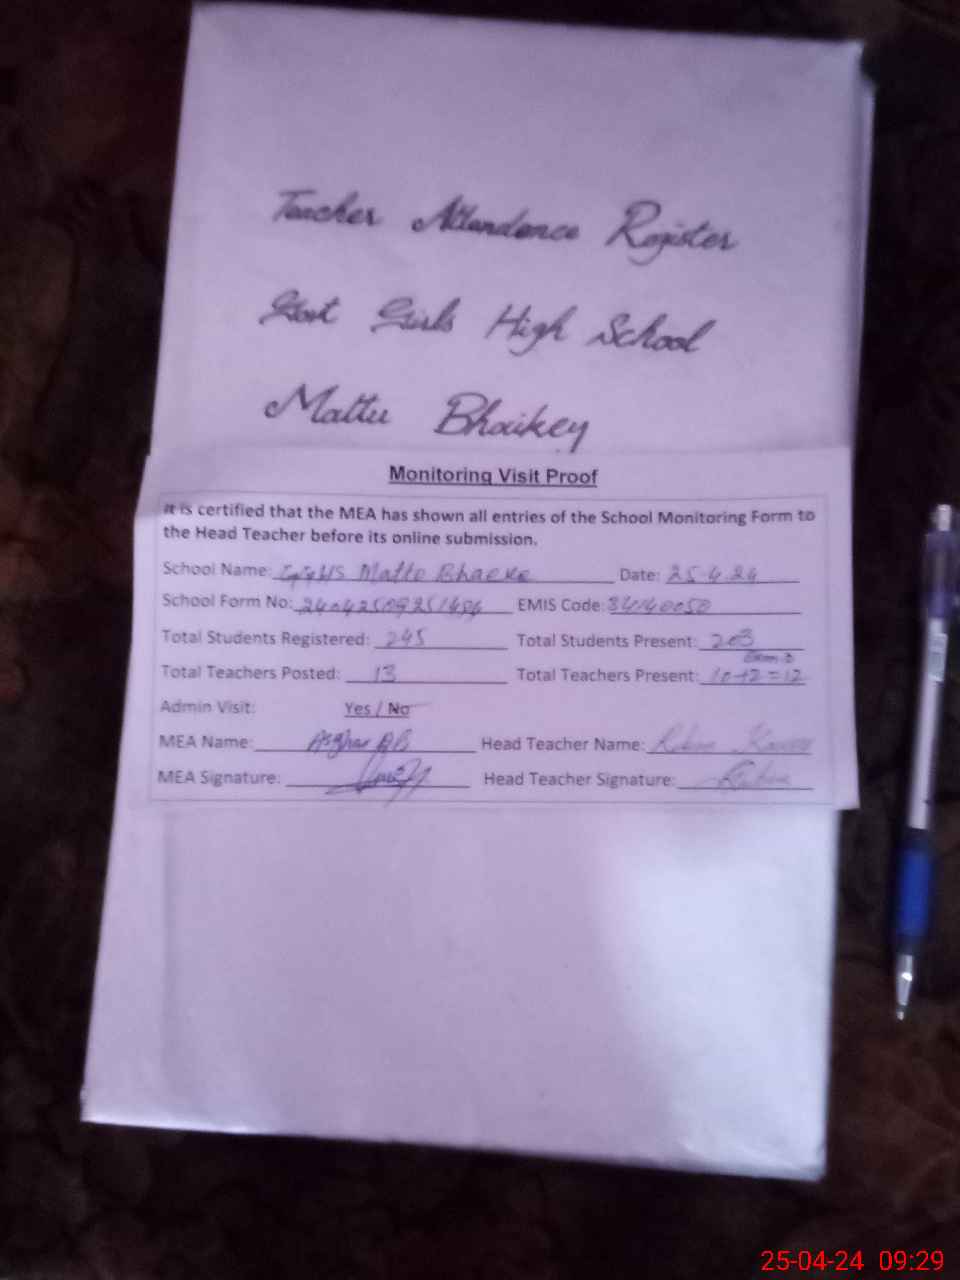 Teacher Attendence Register
Govt Girls High School
Mattu Bhaikey
Monitoring Visit Proof
It is certified that the MEA has shown all entries of the School Monitoring Form to
the Head Teacher before its online submission.
School Name: GGHS Matto Bhaeke Date: 25-4-24
School Form No: EMIS Code: 34140050
Total Students Registered: 245 Total Students Present: 203
Total Teachers Posted: 13 Total Teachers Present: 10+2=12
Admin Visit: Yes / No
MEA Name: Asghar Ali Head Teacher Name:
MEA Signature: Head Teacher Signature:
25-04-24 09:29